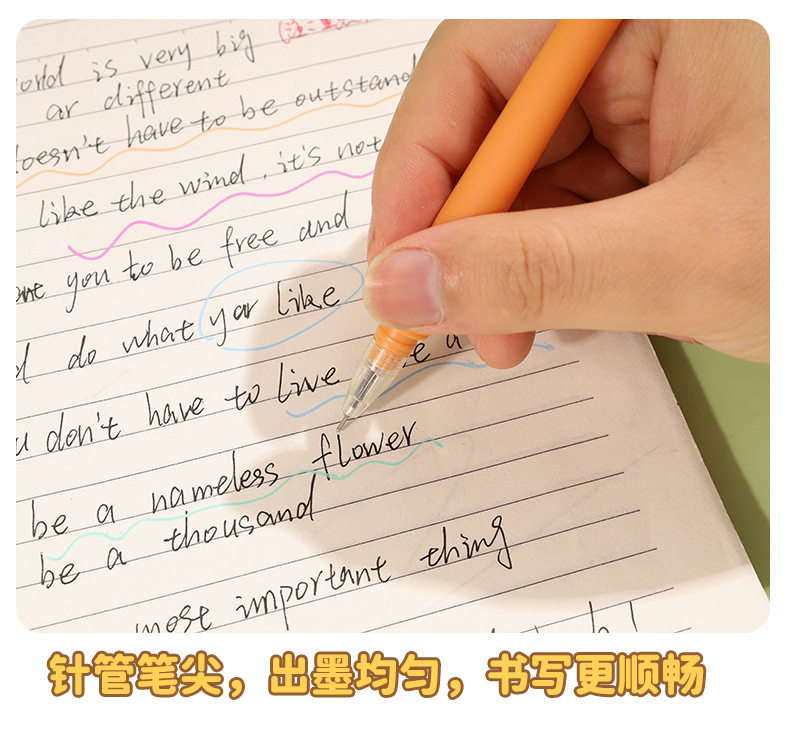 orld is very big
ar different
doesn't have to be outstand
like the wind. it's not
you to be free and
do what yar like
don't have to live
be a nameless flower
be a thousand
most important thing
针管笔尖，出墨均匀，书写更顺畅